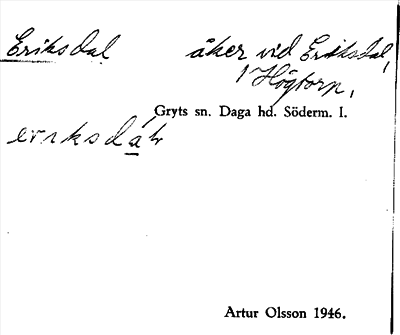 Eriksdal åker vid Eriksdal,
1 Högtorp,
Gryts sn. Daga hd. Söderm. l.
Artur Olsson 1946.